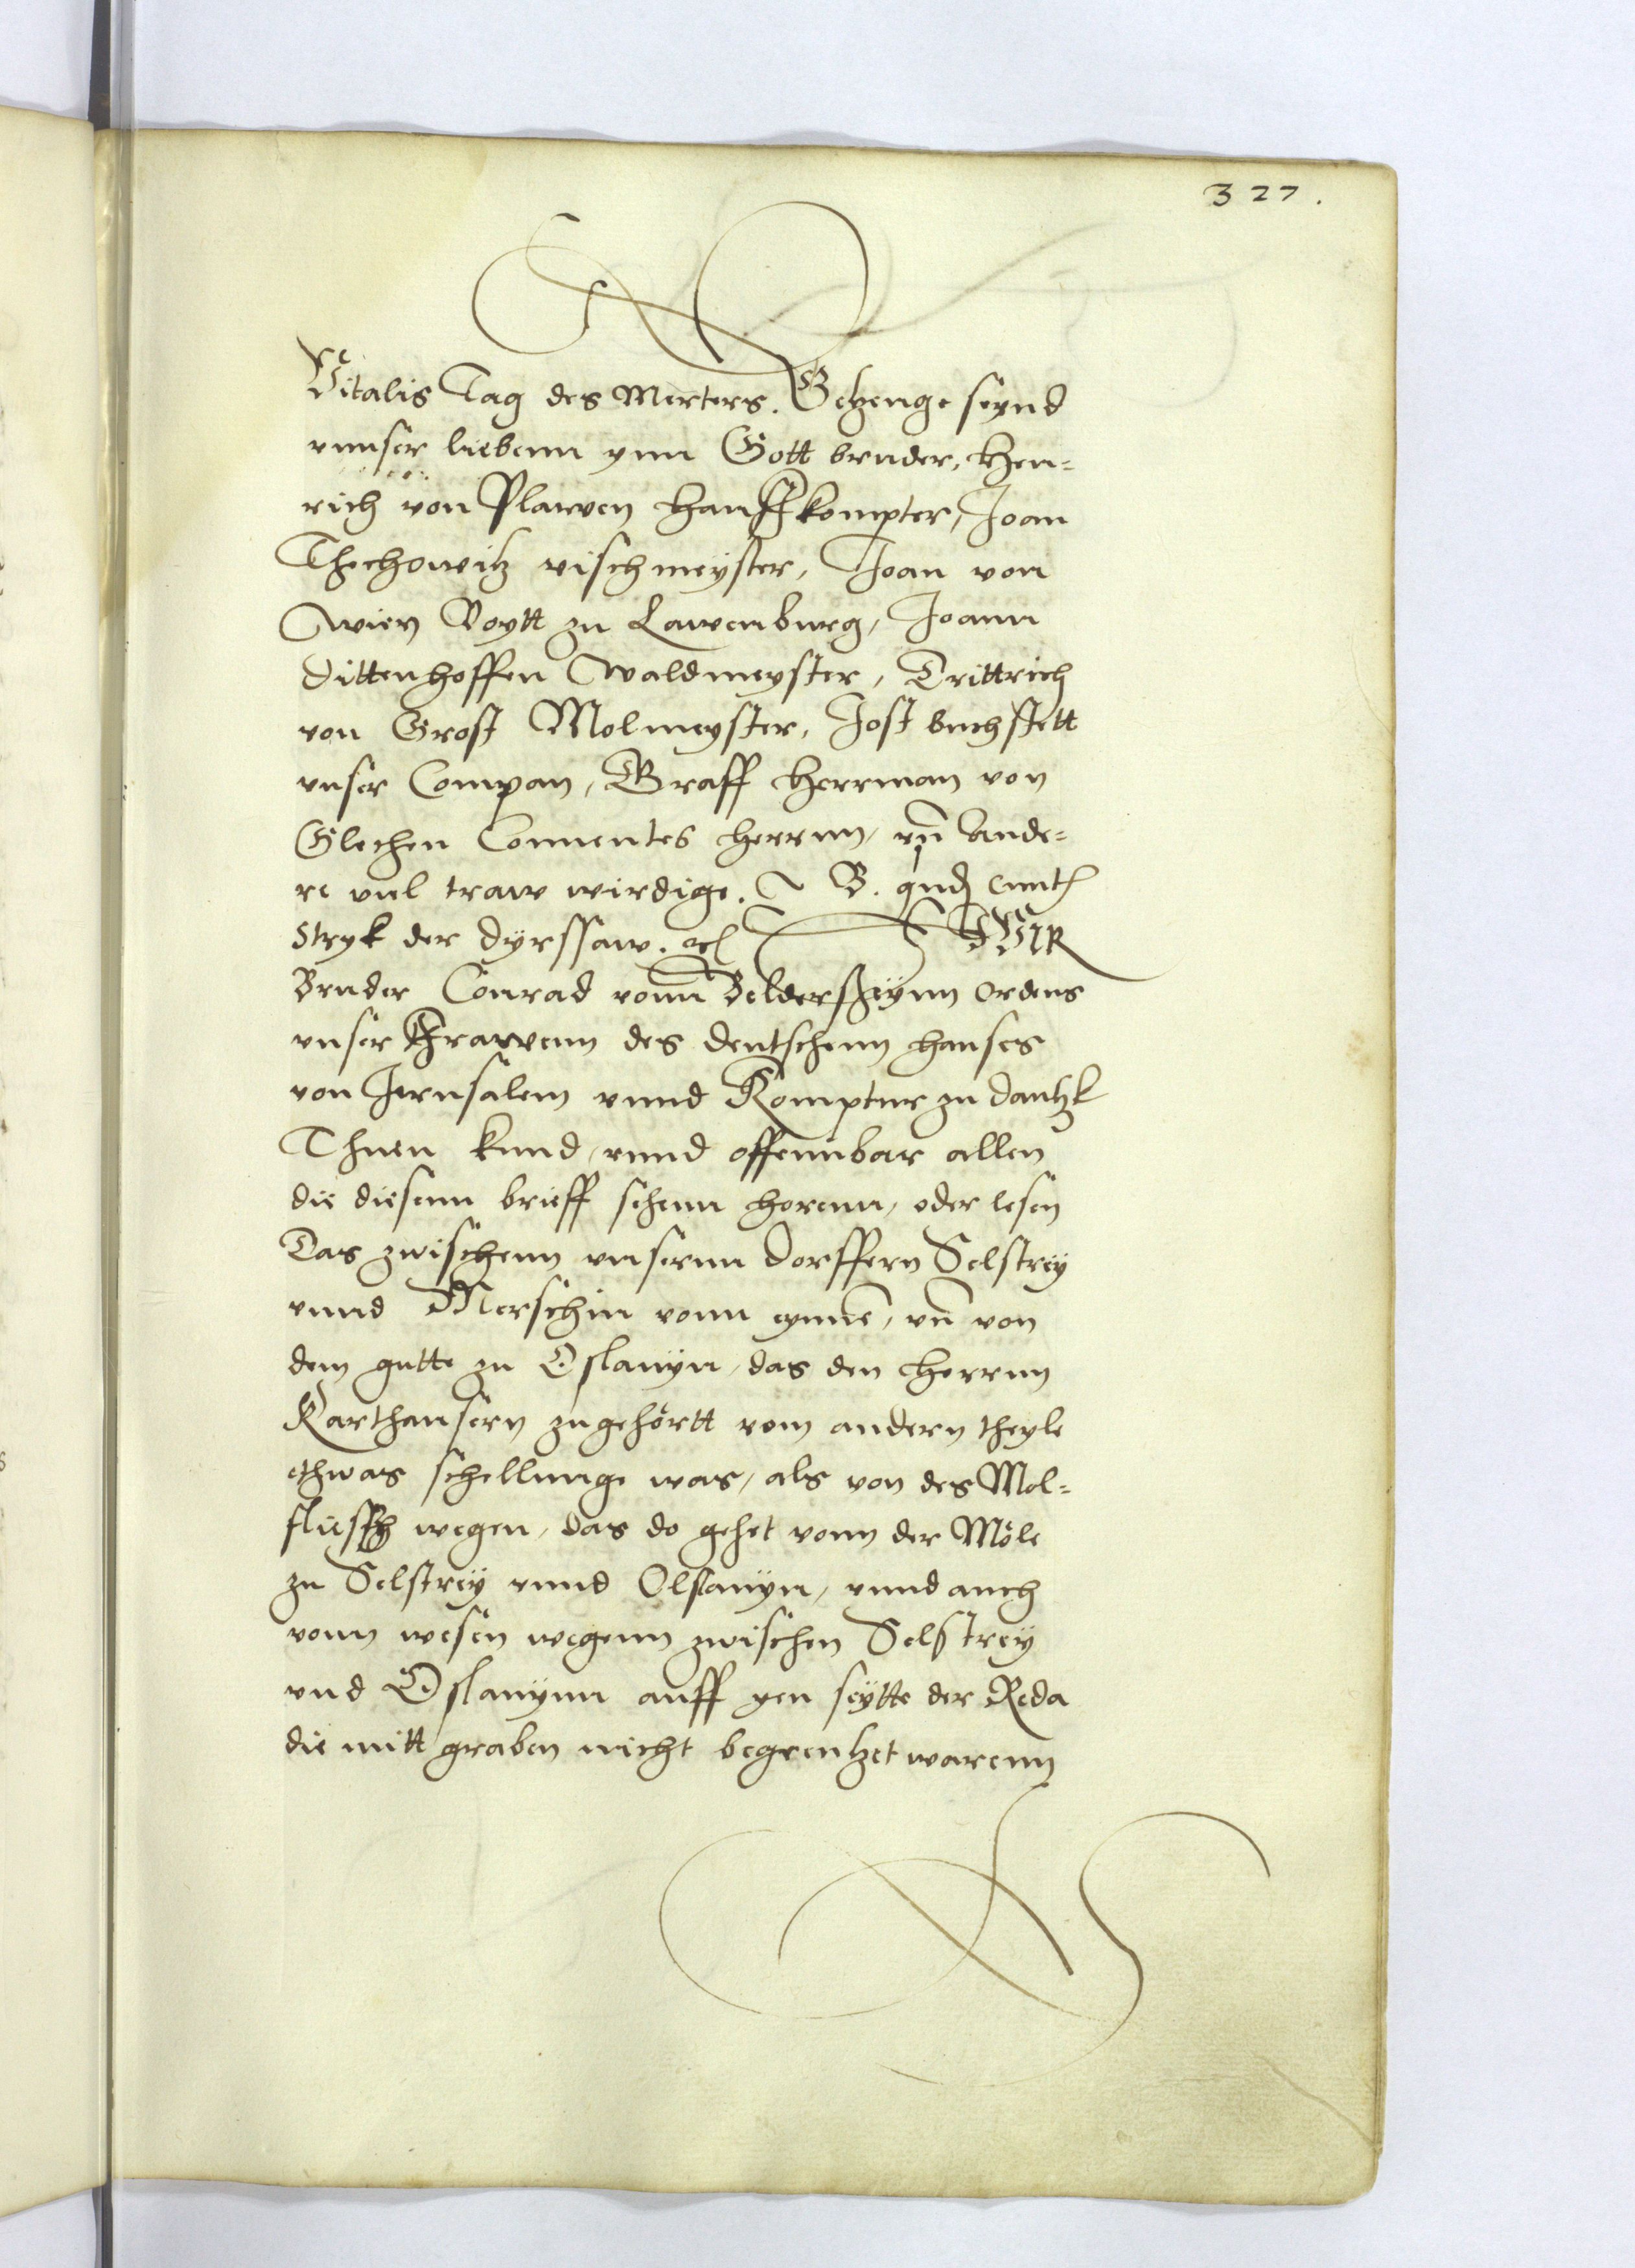 327.
Vitalis Tag des Merters. Getzenge seynd
vnnser liebenn ynn Gott bruder, Hen=
rich von Plawen Hauskompter, Joan
Thechowitz vischmeyster, Joan von
Wien Voytt zu Lawenburg, Joann
Dittenhoffen Waldmeyster, Dittrich
von Grost Molmeyster, Jost buchstett
vnser Compan, Graff Herrman von
Glechen Conuentes herrnn, vn̄ Ande=
re viel traw wirdige. B.
Stryk der Dyrssaw. WIR
Bruder Conrad vonn Beldersheynn Ordens
vnser Frawenn des deutschenn hauses
von Jerusalem vnnd Komptur zu Dantzk
Thuen kund, vnnd offennbar allen
die diesenn brieff sehenn horenn, oder lesen
Das zwischenn vnsernn Dorffern Selstrey
vnnd Merschin vonn eynnē, vn̄ von
dem gutte zu Oslanyn, das den Herrnn
Karthausern zugehörtt vom andern theyle
ethwas schellunge was, als von des Mol=
fliess wegen, das do gehet vonn der Möle
zu Selstrey vnnd Olslanyn, vnnd auch
vonn wesen wegenn zwischen Selstrey
vnd Oslanynn auff yen seytte der Reda
die mitt graben nicht begrentzet warenn